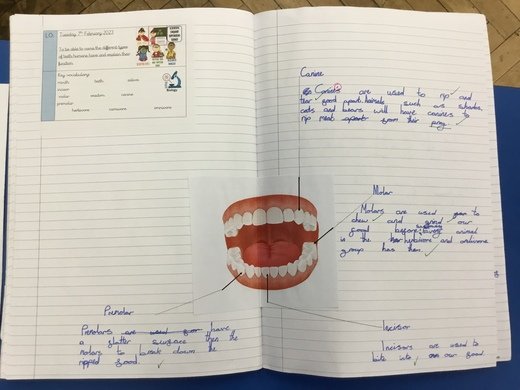 L.O.
Tuesday 7th February 2023
To be able to name the different types
of teeth humans have and explain their
function.
Key vocabulary
mouth teeth
incisor
molar canine
premolar
herbivore carnivore omnivore
Biology
Canine
Canines are used to rip and
tear food apart. such as sharks,
cats and bears will have canines to
rip meat apart from their prey.
Molar
Molars are used to
chew and grind our
food before
is the herbivore and omnivore
group has them.
Premolar
Premolars are used have
a flatter surface then the
molars to break down the
ripped food.
Incisor
Incisors are used to
bite into our food.